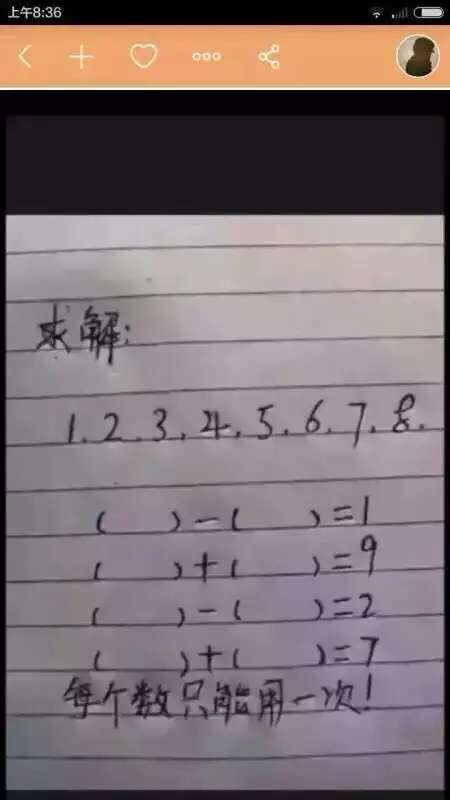 上午8:36
求解:
1.2.3.4.5.6.7.8.
( )-( )=1
( )+( )=9
( )-( )=2
( )+( )=7
每个数只能用一次!